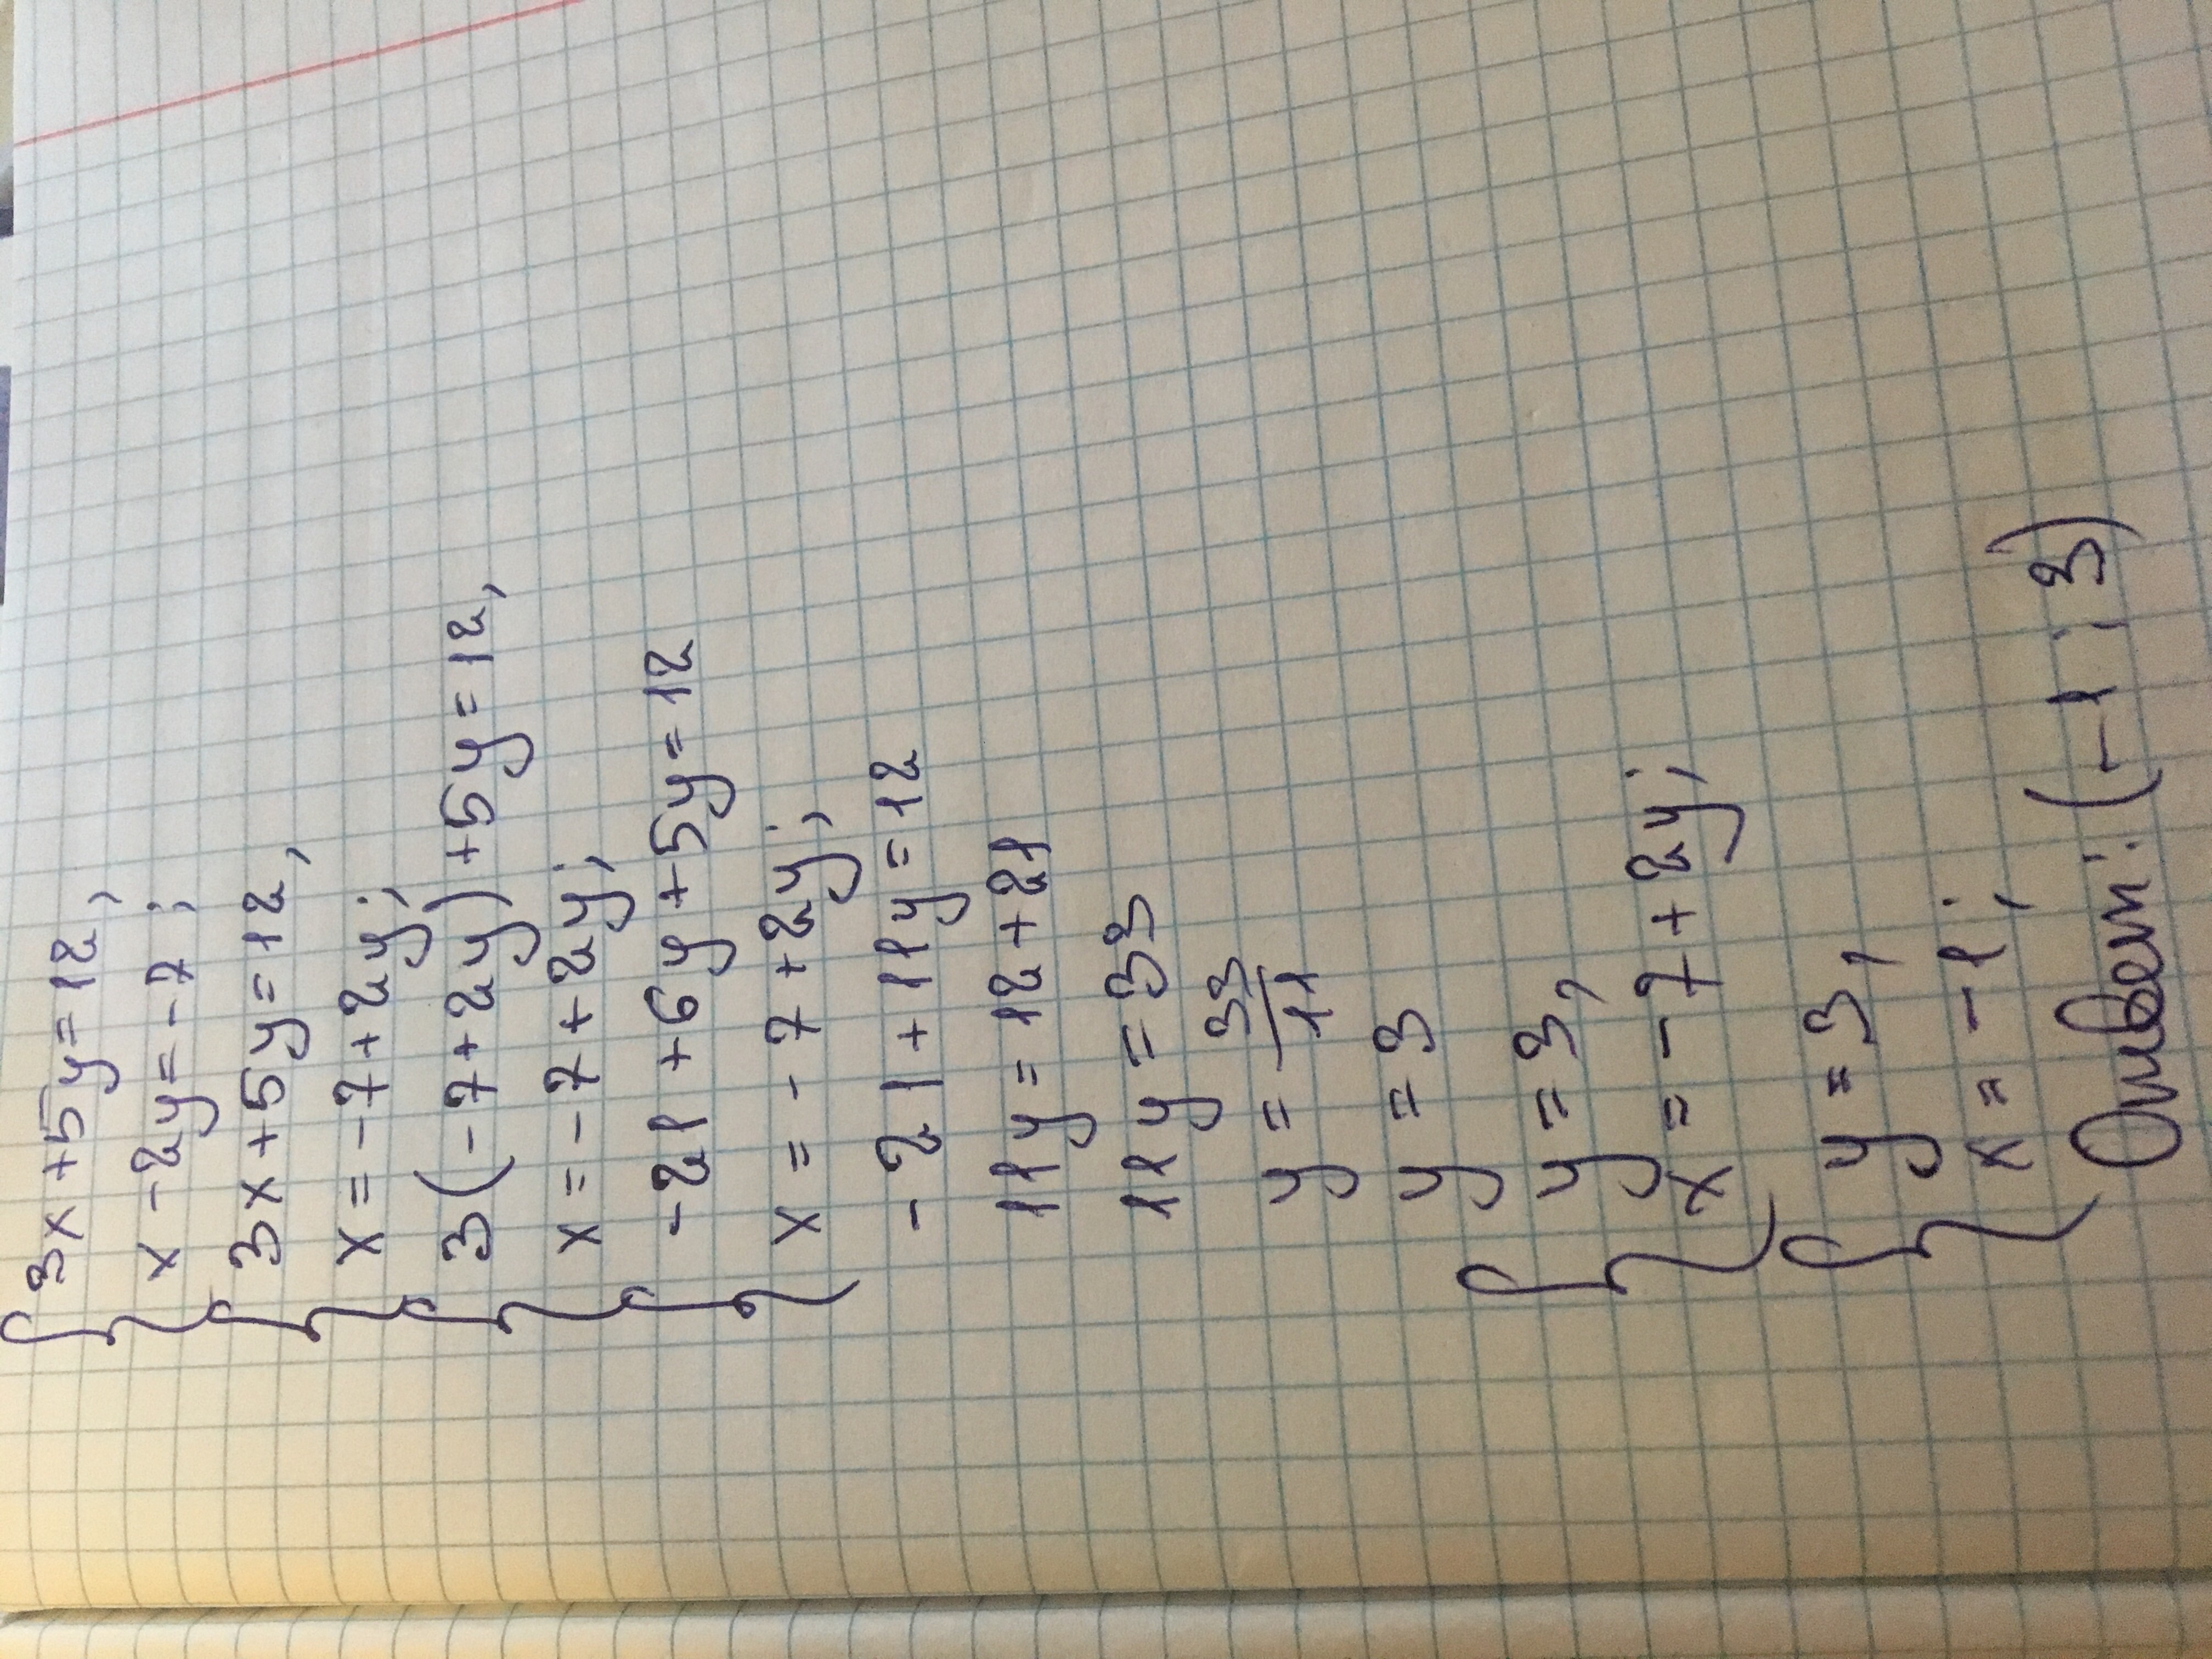 {3x+5y=12,
x-2y=-7;
{3x+5y=12,
x=-7+2y;
{3(-7+2y)+5y=12,
x=-7+2y;
{-21+6y+5y=12
x=-7+2y;
-21+11y=12
11y=12+21
11y=33
y=33/11
y=3
{y=3,
x=-7+2y;
{y=3,
x=-1;
Ответ: (-1; 3)